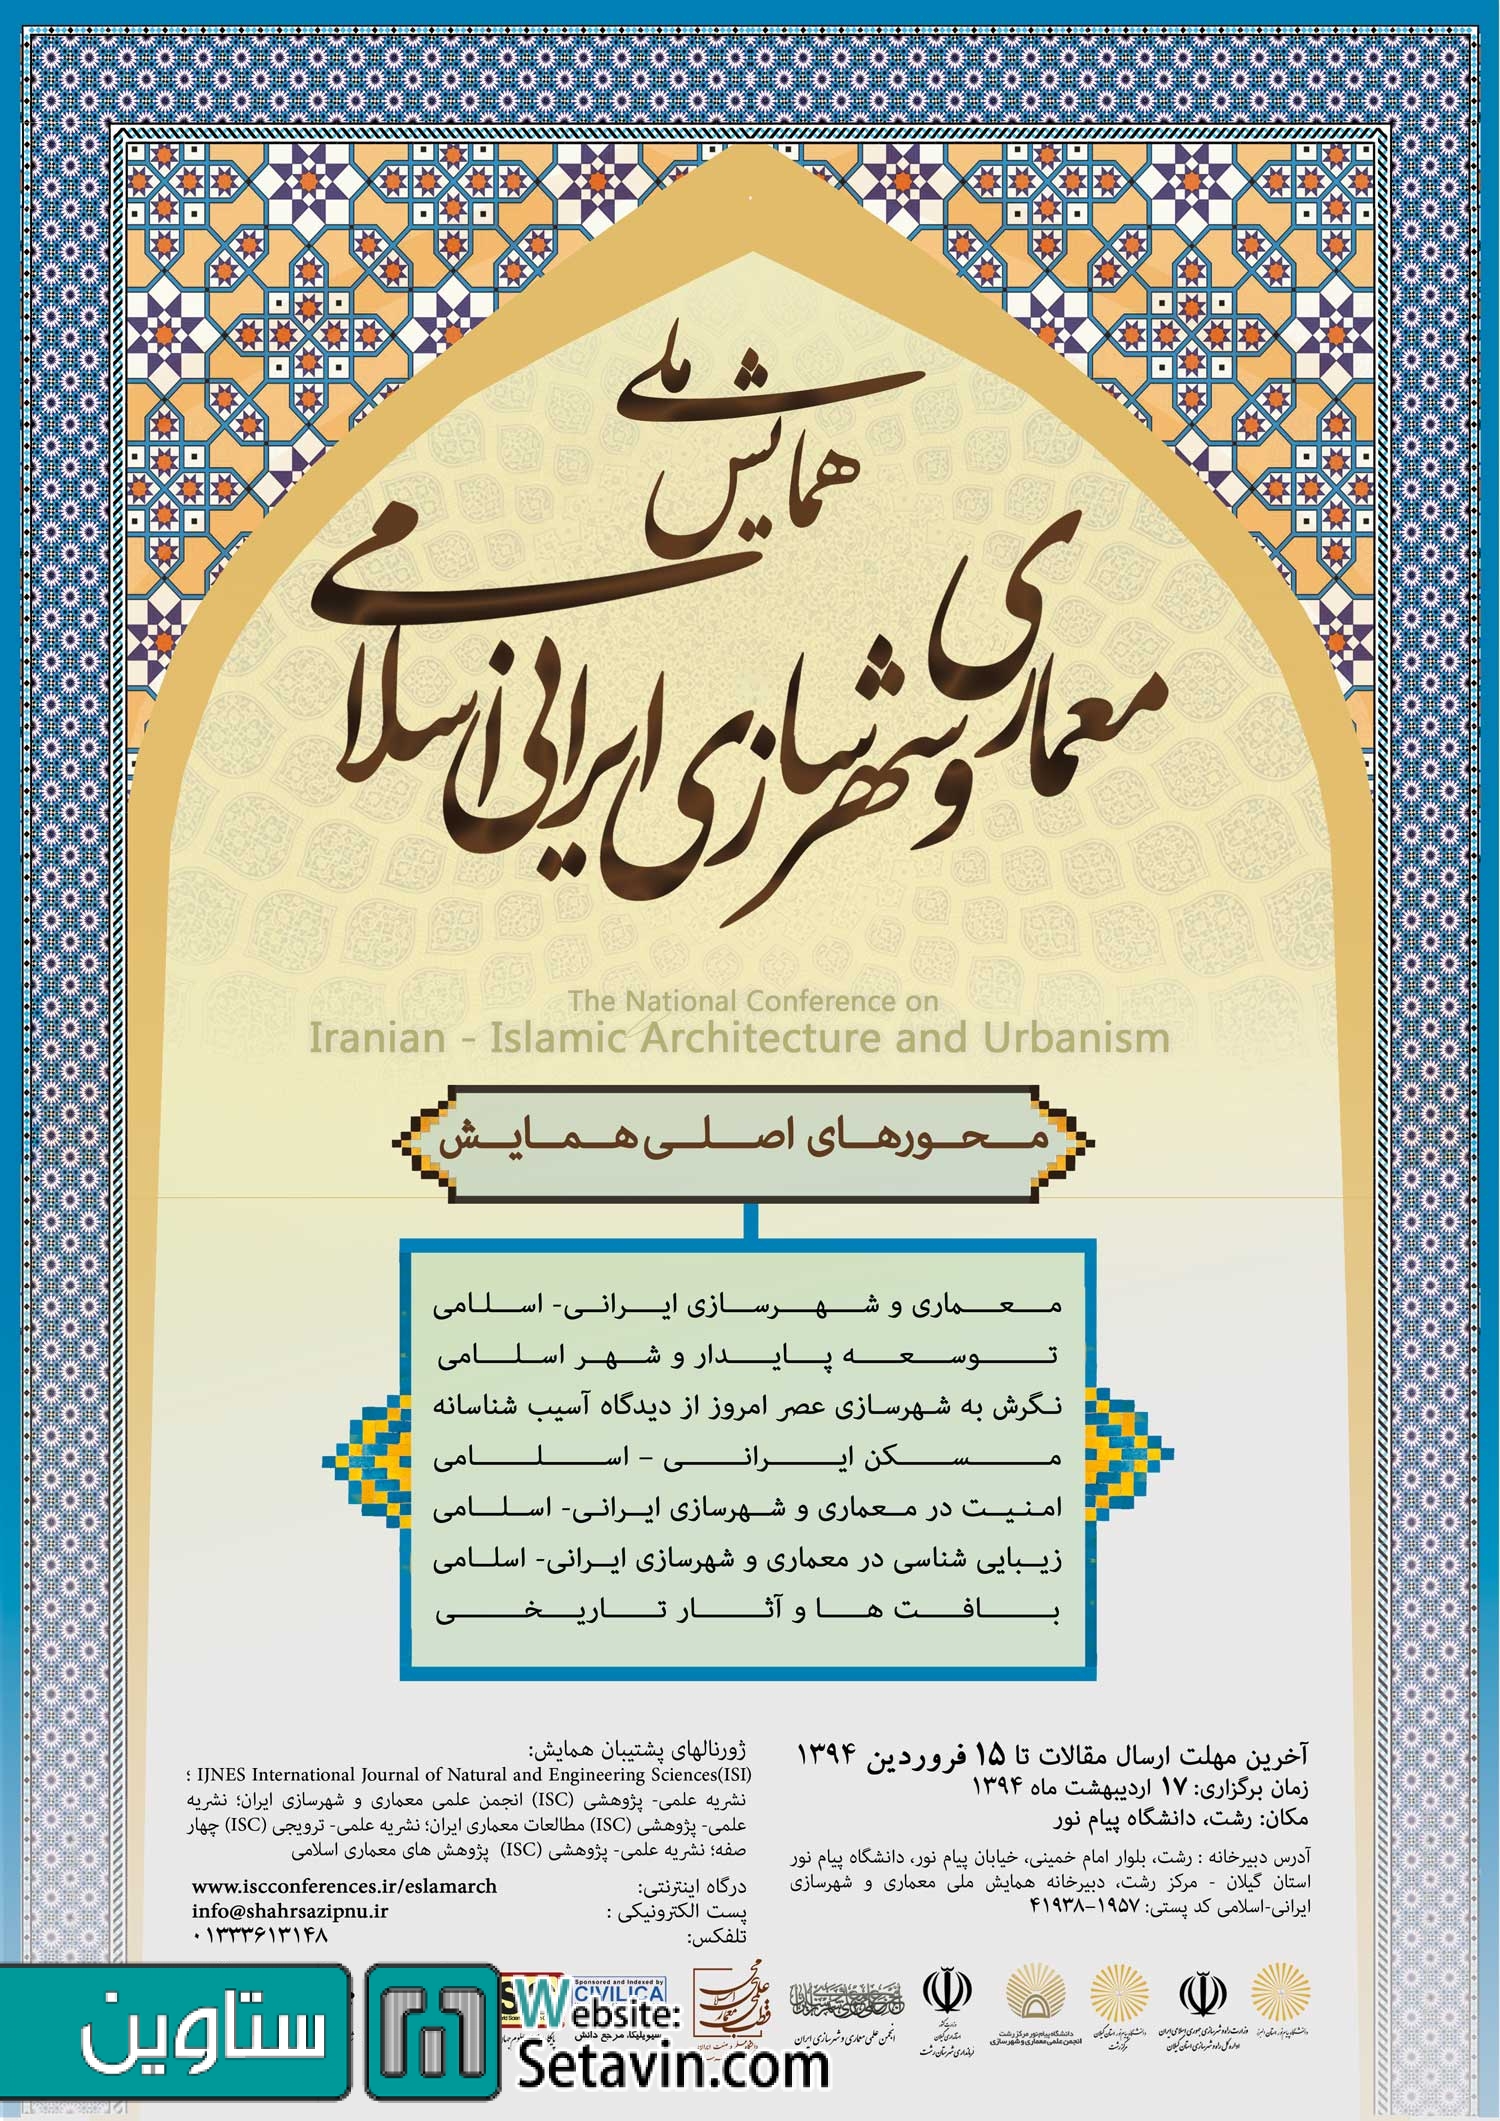 همایش ملی
معماری و شهرسازی ایرانی اسلامی
The National Conference on
Iranian - Islamic Architecture and Urbanism
محورهای اصلی همایش
معماری و شهرسازی ایرانی- اسلامی
توسعه پایدار و شهر اسلامی
نگرش به شهرسازی عصر امروز از دیدگاه آسیب شناسانه
مسکن ایرانی – اسلامی
امنیت در معماری و شهرسازی ایرانی- اسلامی
زیبایی شناسی در معماری و شهرسازی ایرانی- اسلامی
بافت ها و آثار تاریخی
آخرین مهلت ارسال مقالات تا ۱۵ فروردین ۱۳۹۴
زمان برگزاری: ۱۷ اردیبهشت ماه ۱۳۹۴
مکان: رشت، دانشگاه پیام نور
آدرس دبیرخانه : رشت، بلوار امام خمینی، خیابان پیام نور، دانشگاه پیام نور
استان گیلان - مرکز رشت، دبیرخانه همایش ملی معماری و شهرسازی
ایرانی-اسلامی کد پستی: ۱۹۵۷–۴۱۹۳۸
ژورنالهای پشتیبان همایش:
IJNES International Journal of Natural and Engineering Sciences(ISI) ؛
نشریه علمی- پژوهشی (ISC) انجمن علمی معماری و شهرسازی ایران؛ نشریه
علمی- پژوهشی (ISC) مطالعات معماری ایران؛ نشریه علمی- ترویجی (ISC) چهار
صفه؛ نشریه علمی- پژوهشی (ISC) پژوهش های معماری اسلامی
درگاه اینترنتی: www.iscconferences.ir/eslamarch
پست الکترونیکی : info@shahrsazipnu.ir
تلفکس: ۰۱۳۳۳۶۱۳۱۴۸
وزارت راه و شهرسازی جمهوری اسلامی ایران
اداره کل راه و شهرسازی استان گیلان
دانشگاه پیام نور مرکز رشت
انجمن علمی معماری و شهرسازی
فرمانداری شهرستان رشت
انجمن علمی معماری و شهرسازی ایران
Sponsored and Indexed by
CIVILICA
سیویلیکا، مرجع دانش
ستاوین
Website:
Setavin.com